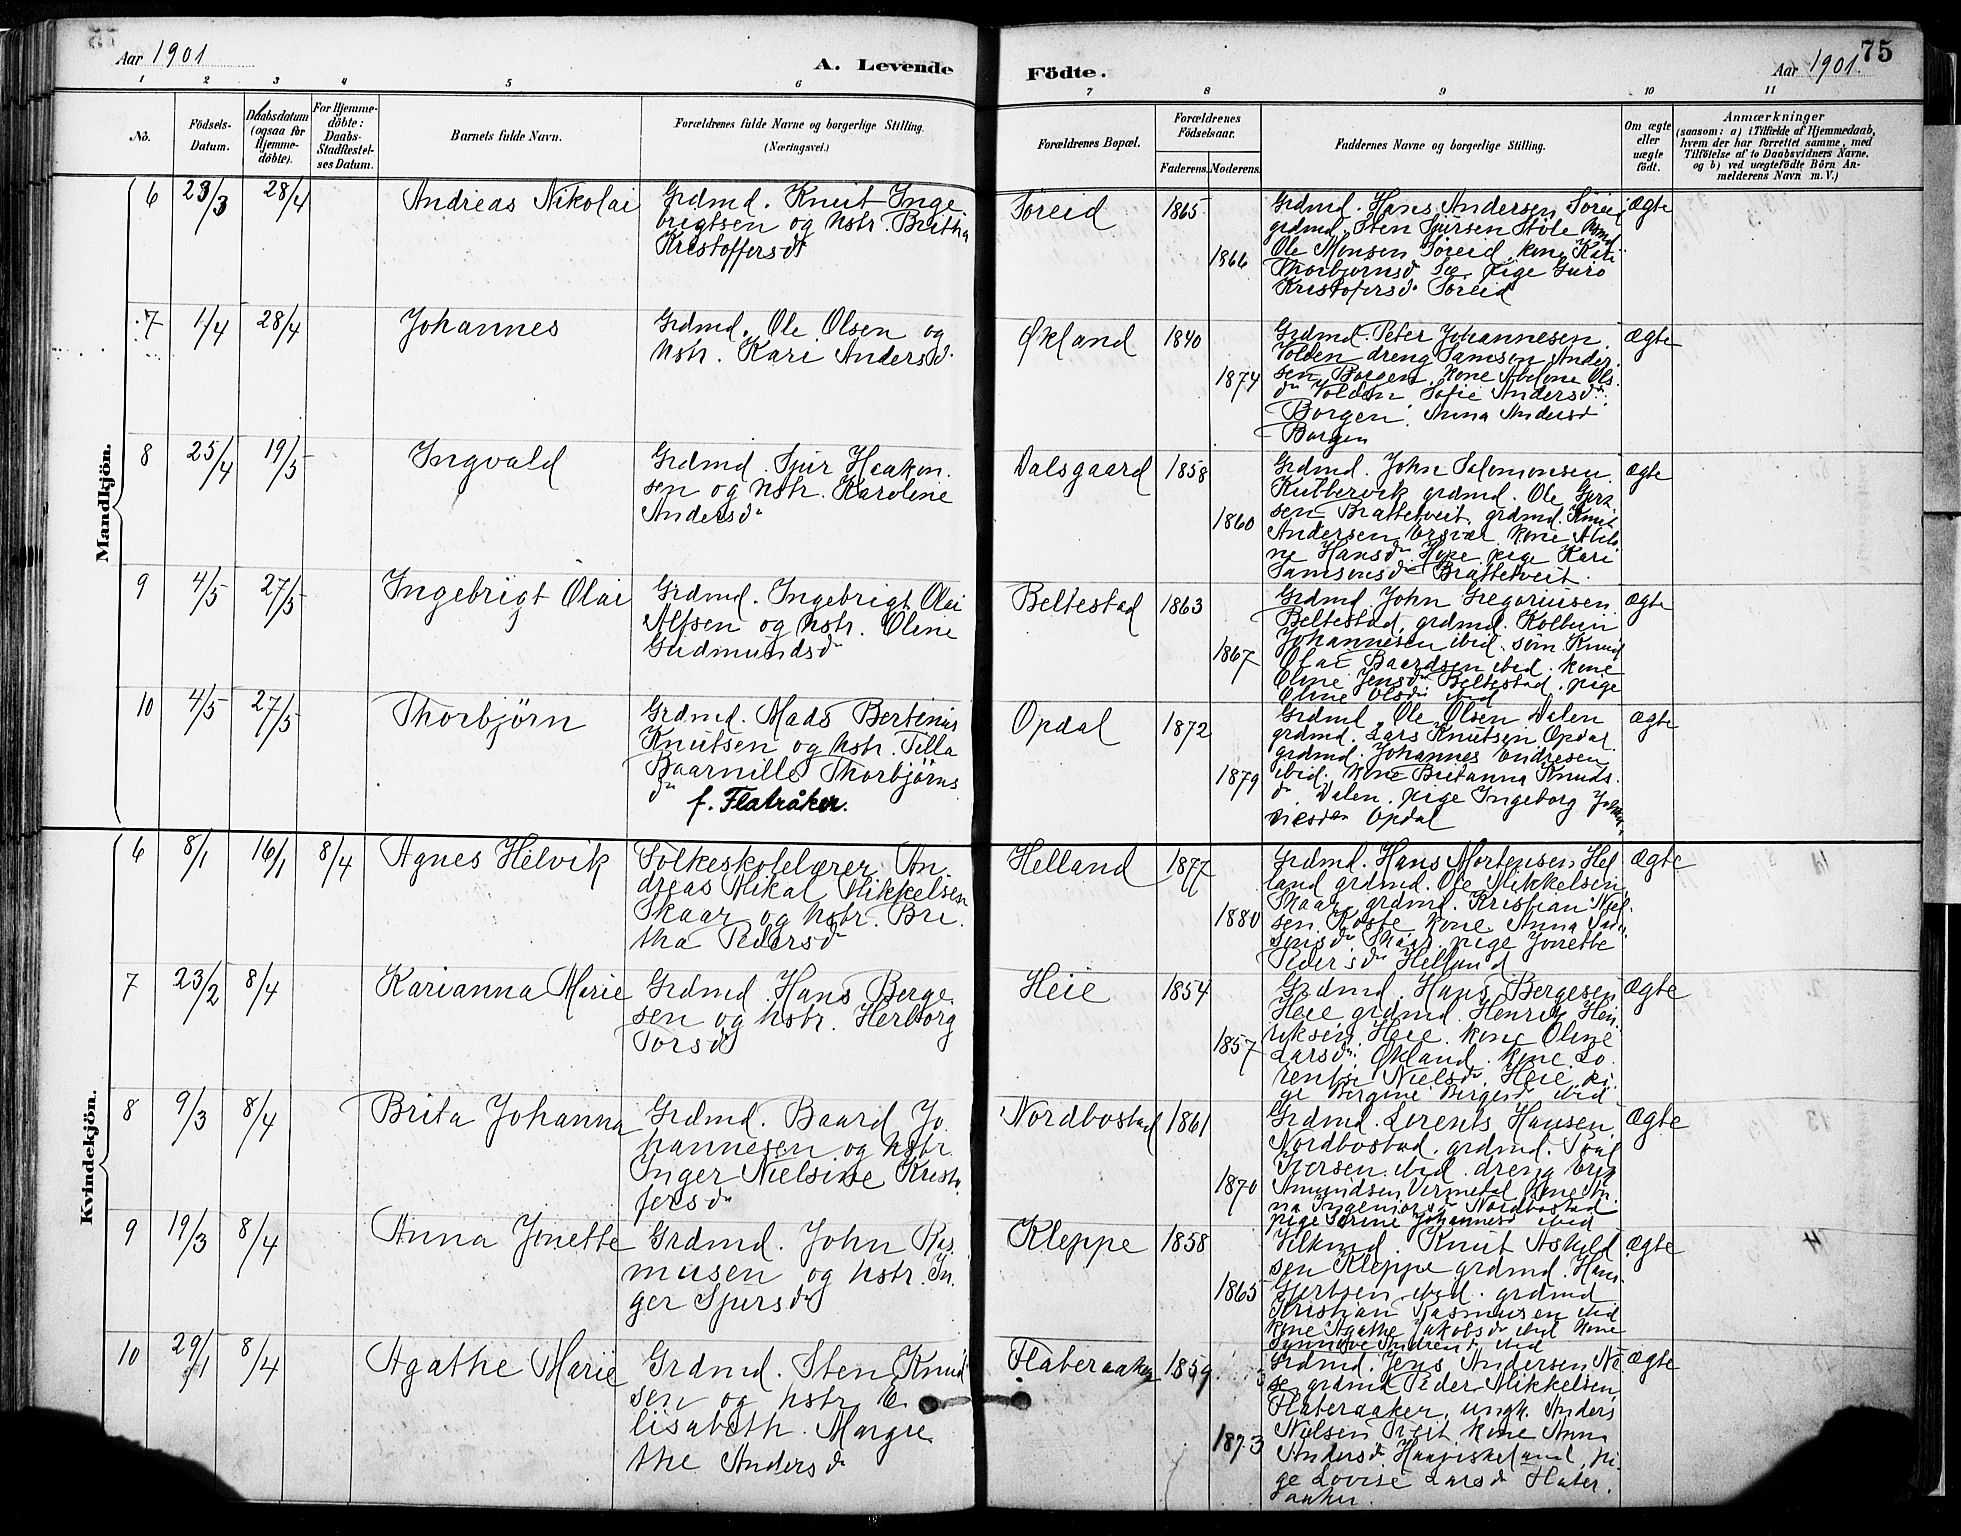 Aar 1901
A. Levende
Födte.
Aar 1901.
75
1 2 3 4 5 6 7 8 9 10 11
No.
Födsels-
Datum.
Daabsdatum
(ogsaa for
Hjemme-
döbte).
For Hjemme-
döbte:
Daabs-
Stadfæstel-
ses Datum.
Barnets fulde Navn.
Forældrenes fulde Navne og borgerlige Stilling.
(Næringsvei.)
Forældrenes Bopæl.
Forældrenes
Födselsaar.
Faderens.
Moderens.
Faddernes Navne og borgerlige Stilling.
Om ægte
eller
uægte
födt.
Anmærkninger
(saasom: a) i Tilfælde af Hjemmedaab,
hvem der har forrettet samme, med
Tilföielse af to Daabsvidners Navne,
og b) ved uægtefödte Börn An-
melderens Navn m. V.)
Mandkjön.
6 23/3 28/4 Andreas Nikolai
Grdmd. Knut Inge
brigtsen og hstr. Britha
Kristoffersdr
Søreid 1865
1866
Grdmd. Hans Andersen Søreid
grdmd. Sten Sjursen Støle
Ole Monsen Søreid, kone Kari
Thorbjørnsdr Sæ pige Guro
Kristofersdr Søreid
ægte
7 1/4 28/4 Johannes
Grdmd. Ole Olsen og
hstr. Kari Andersdr.
Økland 1840
1874
Grdmd. Peter Johannesen
Volden dreng Samson Ander
sen Borgen, kone Abelone Ols
dr Volden Sofie Andersdr
Borgen. Anna Andersd
Borgen
ægte
8 25/4 19/5 Ingvald
Grdmd. Sjur Haakon
sen og hstr. Karoline
Andersdr
Dalsgaard 1858
1860
Grdmd. John Salomonsen
grdmd. Ole
sen Brattetveit grdmd. Knut
Andersen kone
ne Hansdr pige Kari
Samsonsdr Brattetveit.
ægte
9 4/5 27/5 Ingebrigt Olai
Grdmd. Ingebrigt Olai
Alfsen og hstr. Oline
Gudmundsdr
Beltestad 1863
1867
Grdmd John Gregoriusen
Beltestad, grdmd. Kolbein
Johannesen ibid. søn Knud
Olai Baardsen ibid. kone
Oline Jensdr Beltestad. pige
Oline Olsdr ibid
ægte
10 4/5 27/5 Thorbjörn
Grdmd. Mads Bertinus
Knutsen og hstr. Tilla
Baarnille Thorbjørns
dr
f. Flatråker.
Opdal 1872
1879
Grdmd. Ole Olsen Dalen
grdmd. Lars Knutsen Opdal
grdmd. Johannes Andresen
ibid. kone Britanna Knuds
dr. Dalen. pige Ingeborg
Opdal
ægte
Kvindekjön.
6 8/1 16/1 8/4 Agnes Helvik
Folkeskolelærer An
dreas Mikal Mikkelsen
Skaar og hstr. Bri
tha Pedersdr
Helland 1877
1880
Grdmd. Hans Mortensen Hel
land grdmd. Ole Mikkelsen
Skaar, grdmd. Kristian Niel
sen kone Anna
Skaar. pige Jonette
Pedersdr Helland
ægte
7 23/2 8/4 Karianna Marie
Grdmd. Hans Berge
sen og hstr. Herborg
Torsdr
Heie 1854
1857
Grdmd. Hans Bergesen
Heie grdmd. Henrik Hen
riksen Heie. kone Oline
Larsdr. Økland. kone Lo
rentse Nielsdr. Heie. pi
ge Bergine Bergesd ibid
ægte
8 9/3 8/4 Brita Johanna
Grdmd. Baard Jo
hannesen og hstr
Inger Nielsine Kristo
fersdr
Nordbostad 1861
1870
Grdmd. Lorents Hansen
Nordbostad. grdmd. Poul
Iversen ibid. dreng
Amundsen Vermedal kone An
na Ingeniorsdr Nordbostad
pige Serine Johannesd ibid
ægte
9 19/3 8/4 Anna Jonette
Grdmd. John Ras
musen og hstr. In
ger Sjursdr
Kleppe 1858
1865
Knut
sen Kleppe grdmd. Hans
Gjertsen ibid. grdmd
Kristian Rasmusen ibid
kone Agathe Jakobsdr ibid kone
Synnøve Andrend. ibid
ægte
10 29/1 8/4 Agathe Marie
Grdmd. Sten Knud
sen og hstr. E
lisabeth Margre
the Andersdr
Flateraaker 1859
1873
Grdmd. Jens Andersen Næ
se, grdmd Peder Mikkelsen
Flateraaker, ungk. Anders
Nielsen Tveit kone Anna
Andersdr pi
ge Lovise Larsdr Flater
aaker.
ægte